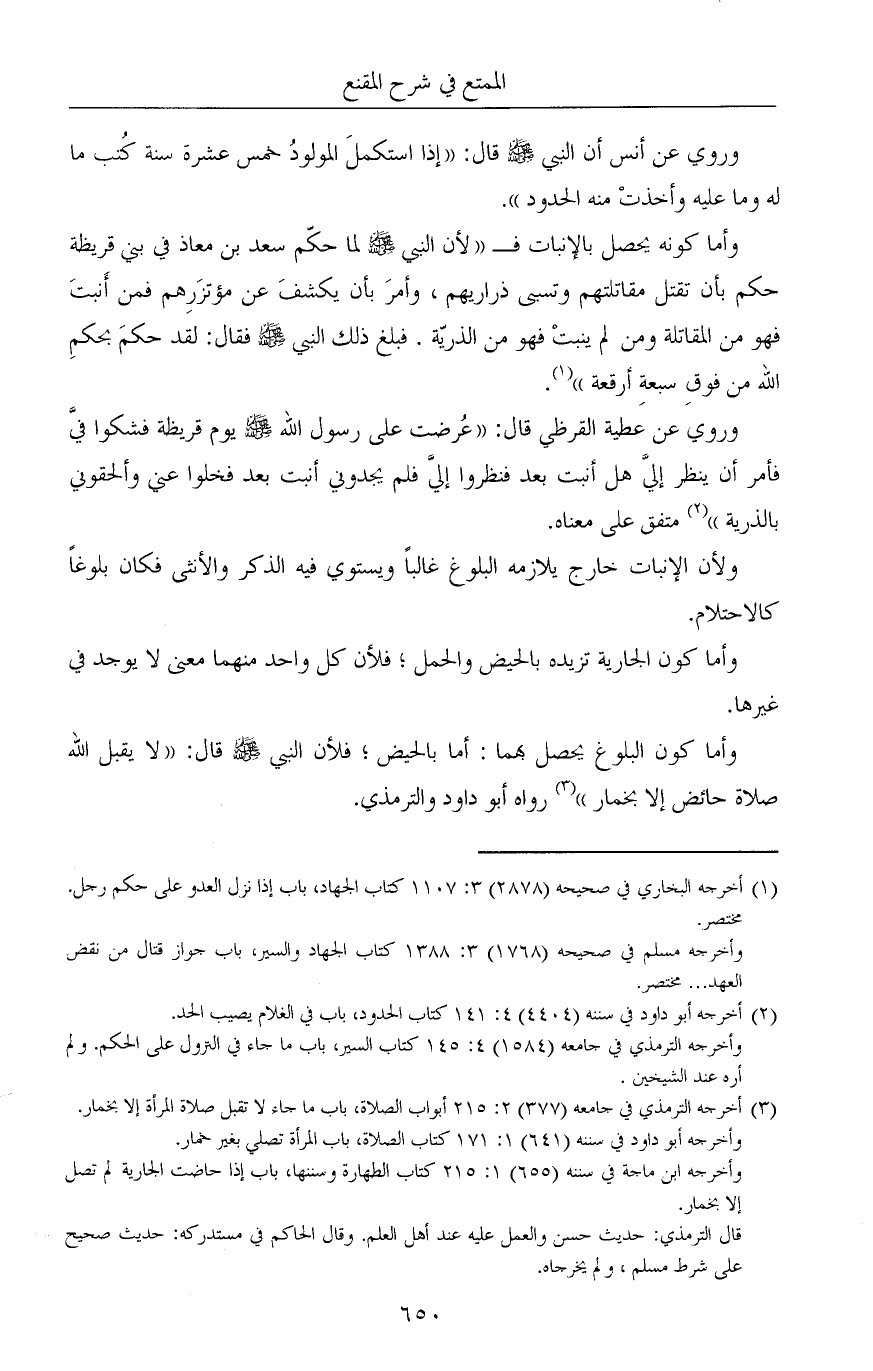 الممتع في شرح المقنع
وروي عن أنس أن النبي ﷺ قال: «إذا استكملَ المولودُ خمس عشرة سنة كُتب ما
له وما عليه وأخذتْ منه الحدود».
وأما كونه يحصل بالإنبات فـــ «لأن النبي ﷺ لما حكّم سعد بن معاذ في بني قريظة
حكم بأن تقتل مقاتلتهم وتسبى ذراريهم ، وأمرَ بأن يكشفَ عن مؤتزَرِهم فمن أَنبتَ
فهو من المقاتلة ومن لم ينبتْ فهو من الذريّة . فبلغ ذلك النبي ﷺ فقال: لقد حكمَ بحكمِ
الله من فوقِ سبعةِ أرقعة»(١).
وروي عن عطية القرظي قال: «عُرضت على رسول الله ﷺ يوم قريظة فشكوا فيَّ
فأمر أن ينظر إليَّ هل أنبت بعد فنظروا إليَّ فلم يجدوني أنبت بعد فخلوا عني وألحقوني
بالذرية»(٢) متفق على معناه.
ولأن الإنبات خارج يلازمه البلوغ غالباً ويستوي فيه الذكر والأنثى فكان بلوغاً
كالاحتلام.
وأما كون الجارية تزيده بالحيض والحمل ؛ فلأن كل واحد منهما معنى لا يوجد في
غيرها.
وأما كون البلوغ يحصل بهما : أما بالحيض ؛ فلأن النبي ﷺ قال: «لا يقبل الله
صلاة حائض إلا بخمار»(٣) رواه أبو داود والترمذي.
(١) أخرجه البخاري في صحيحه (٢٨٧٨) ٣: ١١٠٧ كتاب الجهاد، باب إذا نزل العدو على حكم رجل.
مختصر.
وأخرجه مسلم في صحيحه (١٧٦٨) ٣: ١٣٨٨ كتاب الجهاد والسير، باب جواز قتال من نقض
العهد... مختصر.
(٢) أخرجه أبو داود في سننه (٤٤٠٤) ٤: ١٤١ كتاب الحدود، باب في الغلام يصيب الحد.
وأخرجه الترمذي في جامعه (١٥٨٤) ٤: ١٤٥ كتاب السير، باب ما جاء في النزول على الحكم. ولم
أره عند الشيخين .
(٣) أخرجه الترمذي في جامعه (٣٧٧) ٢: ٢١٥ أبواب الصلاة، باب ما جاء لا تقبل صلاة المرأة إلا بخمار.
وأخرجه أبو داود في سننه (٦٤١) ١: ١٧١ كتاب الصلاة، باب المرأة تصلي بغير خمار.
وأخرجه ابن ماجة في سننه (٦٥٥) ١: ٢١٥ كتاب الطهارة وسننها، باب إذا حاضت الجارية لم تصل
إلا بخمار.
قال الترمذي: حديث حسن والعمل عليه عند أهل العلم. وقال الحاكم في مستدركه: حديث صحيح
على شرط مسلم ، ولم يخرجاه.
٦٥٠